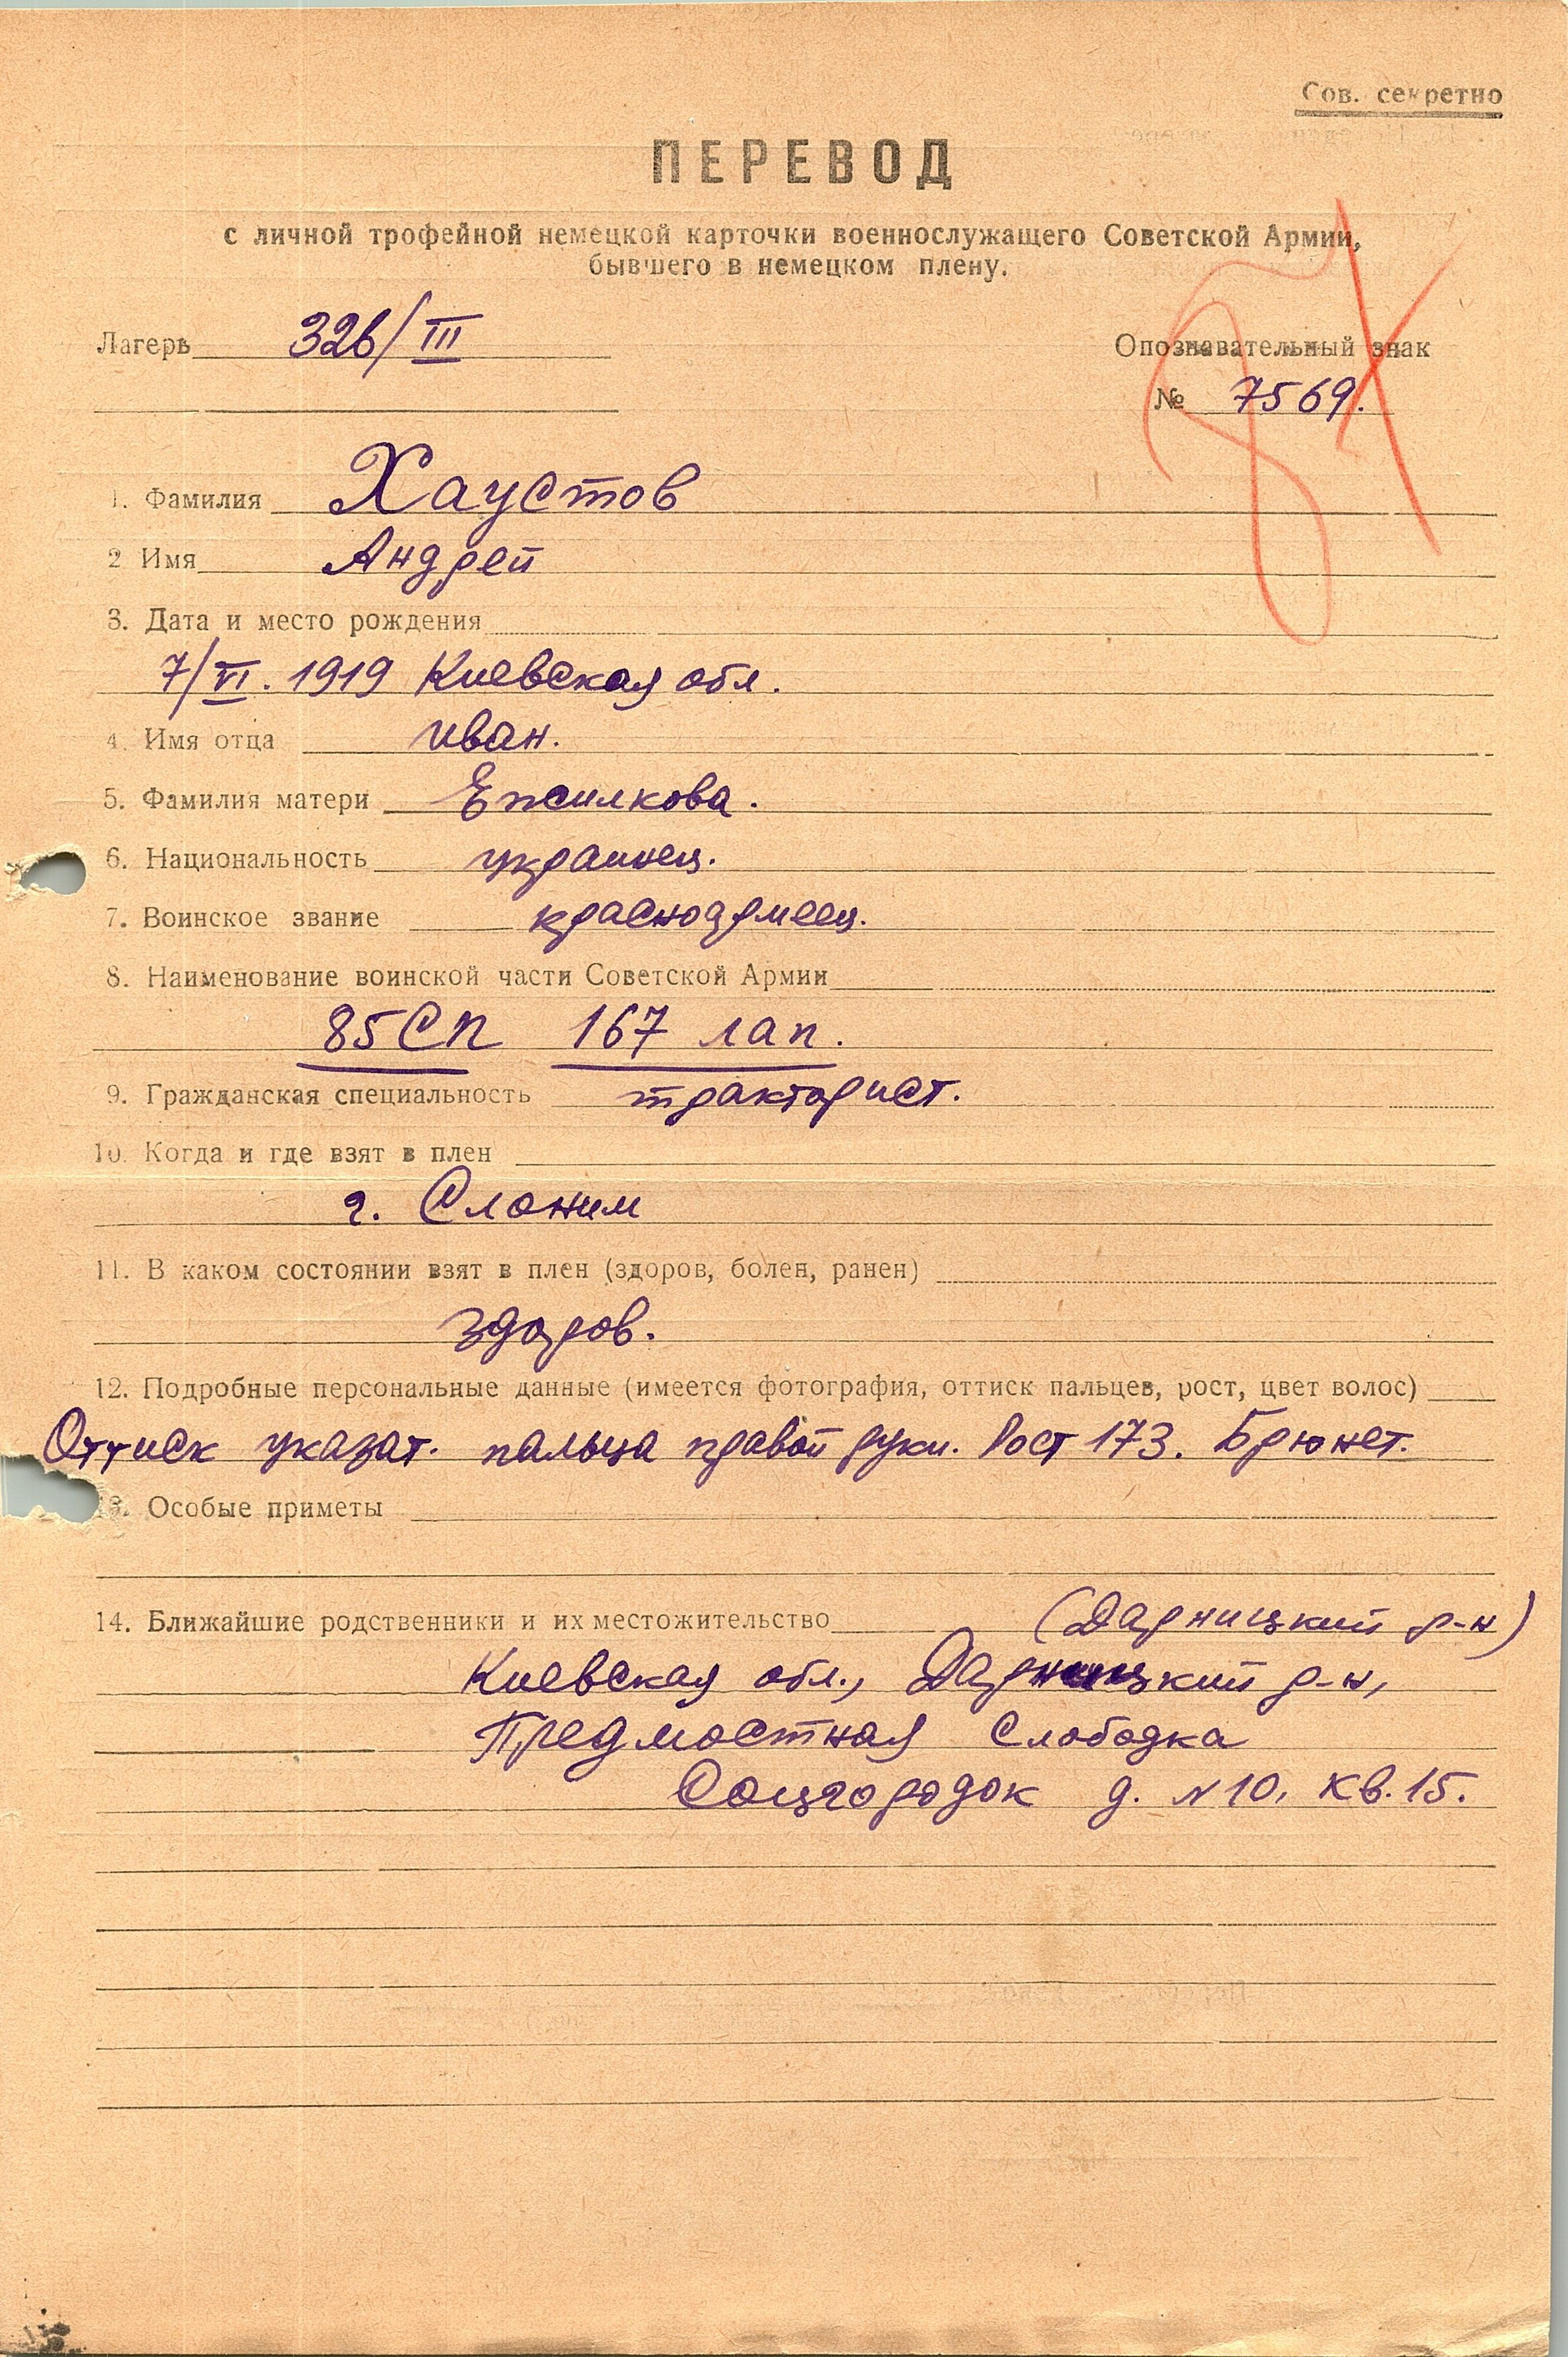 Сов. секретно
ПЕРЕВОД
с личной трофейной немецкой карточки военнослужащего Советской Армии,
бывшего в немецком плену.
Лагерь 326/III
Опознавательный знак
№ 7569.
1. Фамилия Хаустов
2 Имя Андрей
3. Дата и место рождения
7/VI. 1919 Киевская обл.
4. Имя отца Иван.
5. Фамилия матери
6. Национальность украинец.
7. Воинское звание красноармеец.
8. Наименование воинской части Советской Армии
85 СП 167 лап.
9. Гражданская специальность тракторист.
10. Когда и где взят в плен
г. Слоним
11. В каком состоянии взят в плен (здоров, болен, ранен)
здоров.
12. Подробные персональные данные (имеется фотография, оттиск пальцев, рост, цвет волос)
Оттиск указат. пальца правой руки. Рост 173. Брюнет.
13. Особые приметы
14. Ближайшие родственники и их местожительство (Дарницкий р-н)
Киевская обл., Дарницкий р-н,
Предмостная Слободка
Соцгородок д. N 10, кв. 15.